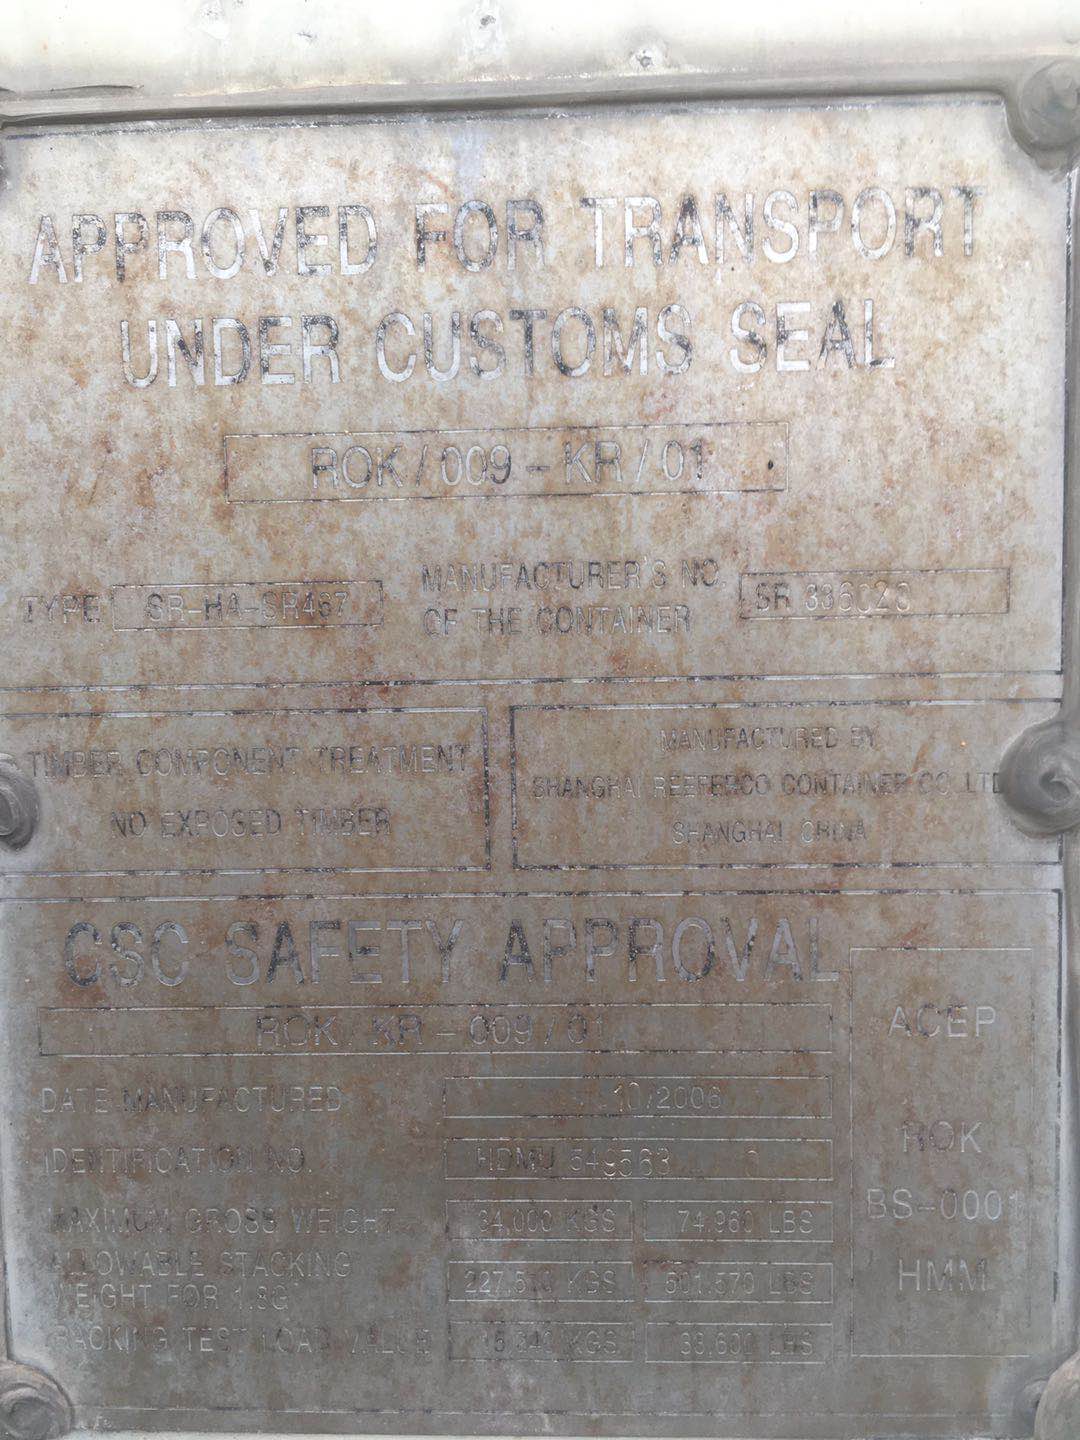 APPROVED FOR TRANSPORT
UNDER CUSTOMS SEAL
ROK/009-KR/01
TYPE SR-HA-SR467
MANUFACTURER'S NO.
OF THE CONTAINER
SR 336023
TIMBER COMPONENT TREATMENT
NO EXPOSED TIMBER
MANUFACTURED BY
SHANGHAI REEFERCO CONTAINER CO. LTD
SHANGHAI, CHINA
CSC SAFETY APPROVAL
ROK/KR-009/01
DATE MANUFACTURED 10/2006
IDENTIFICATION NO. HDMU 549563
MAXIMUM GROSS WEIGHT 34,000 KGS 74,960 LBS
ALLOWABLE STACKING
WEIGHT FOR 1.8G 227,510 KGS 501,570 LBS
RACKING TEST LOAD VALUE 15,240 KGS 33,600 LBS
ACEP
ROK
BS-0001
HMM